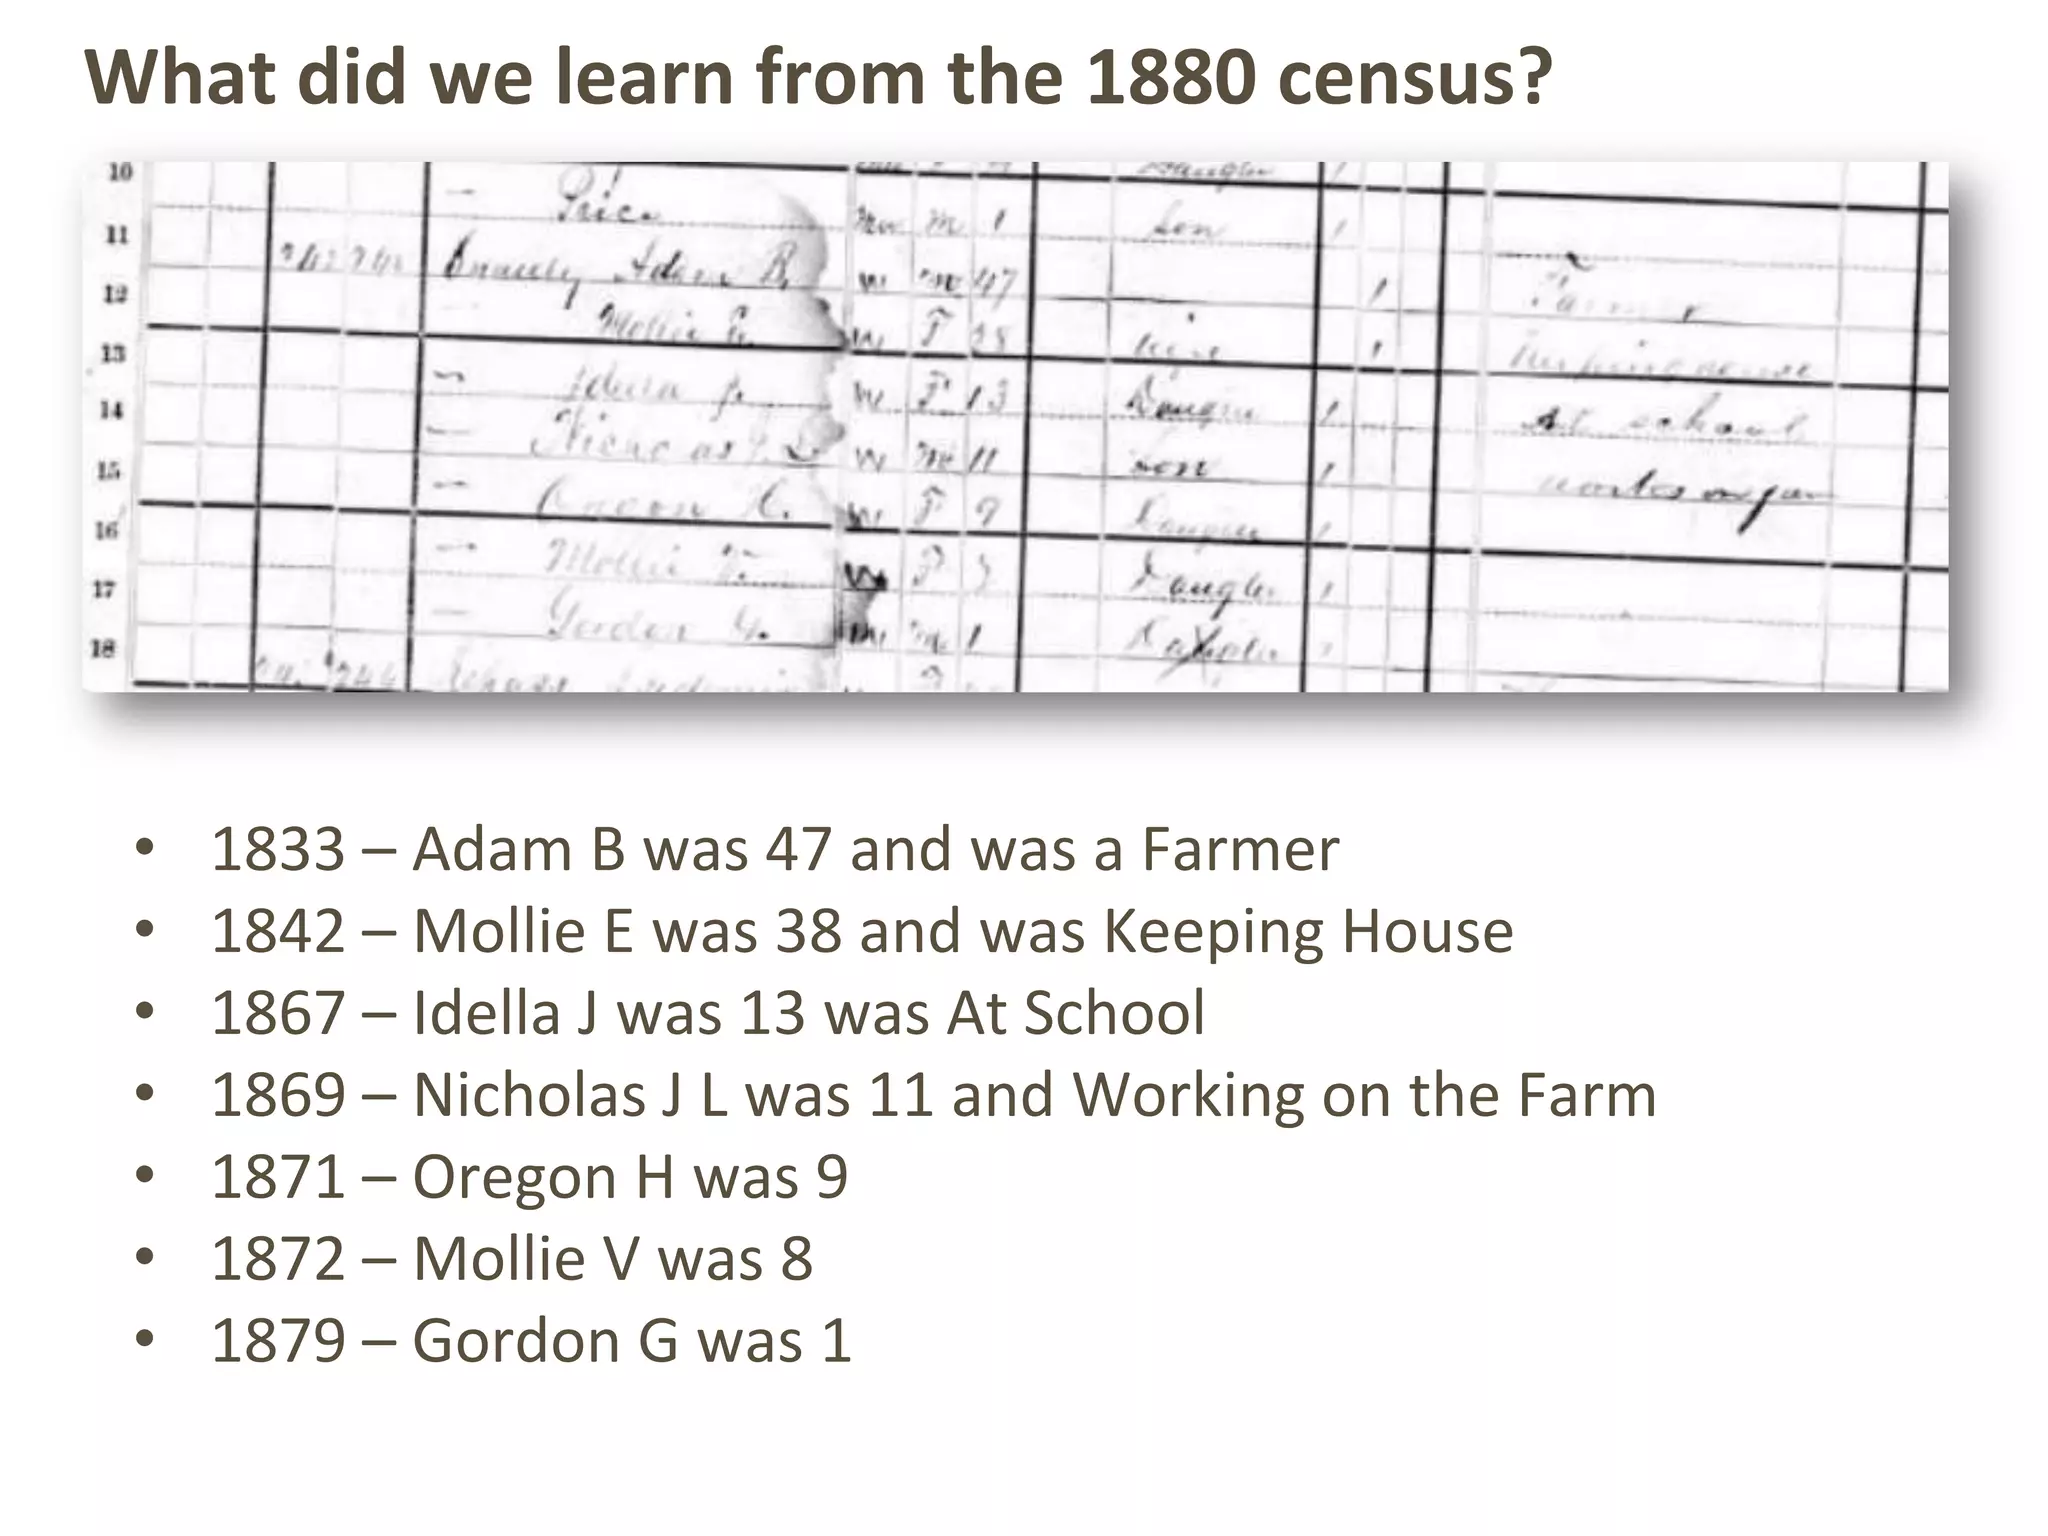 What did we learn from the 1880 census?
10 Daughter 1
11 — Price Mu M 1 Son 1
12 242 242 Adam B. W M 47 1 Farmer
13 Mollie E. W F 38 Wife 1 Keeping house
14 — Idella J. W F 13 Daughter 1 At school
15 — Nicholas J. L W M 11 Son 1 works on farm
16 — Oregon H. W F 9 Daughter 1
17 — Mollie V. W F Daughter 1
18 — Gordon G. W M 1
244
• 1833 – Adam B was 47 and was a Farmer
• 1842 – Mollie E was 38 and was Keeping House
• 1867 – Idella J was 13 was At School
• 1869 – Nicholas J L was 11 and Working on the Farm
• 1871 – Oregon H was 9
• 1872 – Mollie V was 8
• 1879 – Gordon G was 1